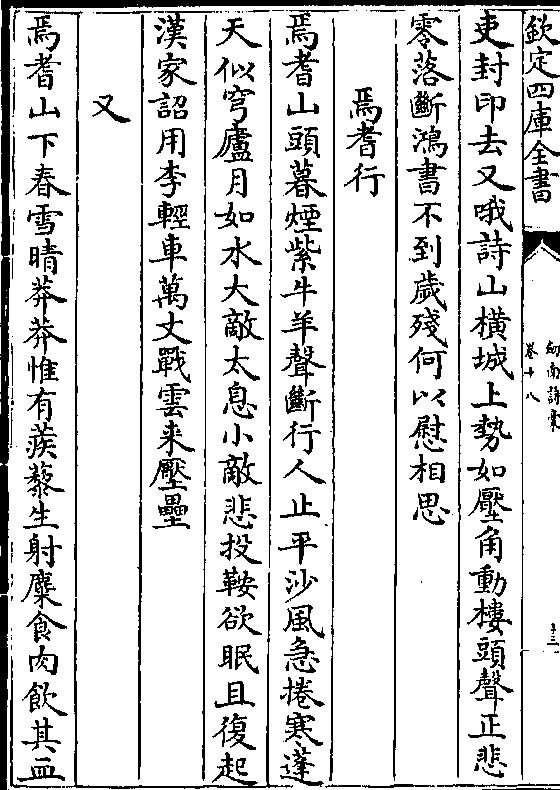 欽定四庫全書
劒南詩藁
卷十八
吏封印去又哦詩山橫城上勢如壓角動樓頭聲正悲
零落斷鴻書不到歲殘何以慰相思
焉耆行
焉耆山頭暮煙紫牛羊聲斷行人止平沙風急捲寒蓬
天似穹廬月如水大敵太息小敵悲投鞍欲眠且復起
漢家詔用李輕車萬丈戰雲来壓壘
又
焉耆山下春雪晴莽莽惟有蒺藜生射麋食肉飲其血